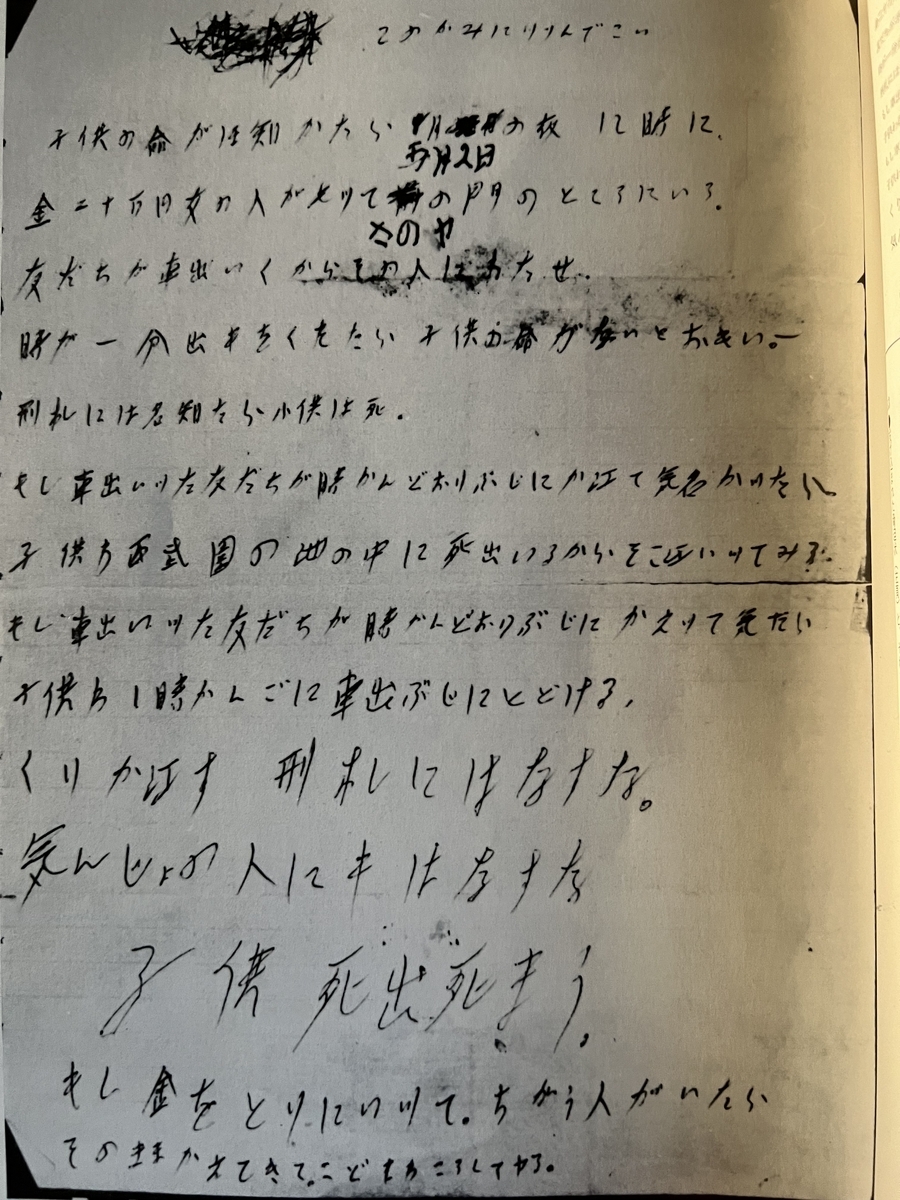 このかみにツツんでこい
子供の命がほ知かたら の夜12時に、
五月2日
金二十万円女の人がもツて の門のところにいろ。
さのヤ
友だちが車出いくからその人にわたせ。
時が一分出もをくれたら子供の命がないとおもい。
刑札には名知たら小供は死。
もし車出いツた友だちが時かんどおりぶじにか江て気名かツたら
子供わ西武園の池の中に死出いるからそこ江いツてみろ。
もし車出いツた友だちが時かんどおりぶじにかえツて気たら
子供わ1時かんごに車出ぶじにとどける、
くりか江す 刑札にはなすな。
気んじょの人にもはなすな
子供死出死まう。
もし金をとりにいツて。ちがう人がいたら
そのままかえてきて。こどもわころしてヤる。